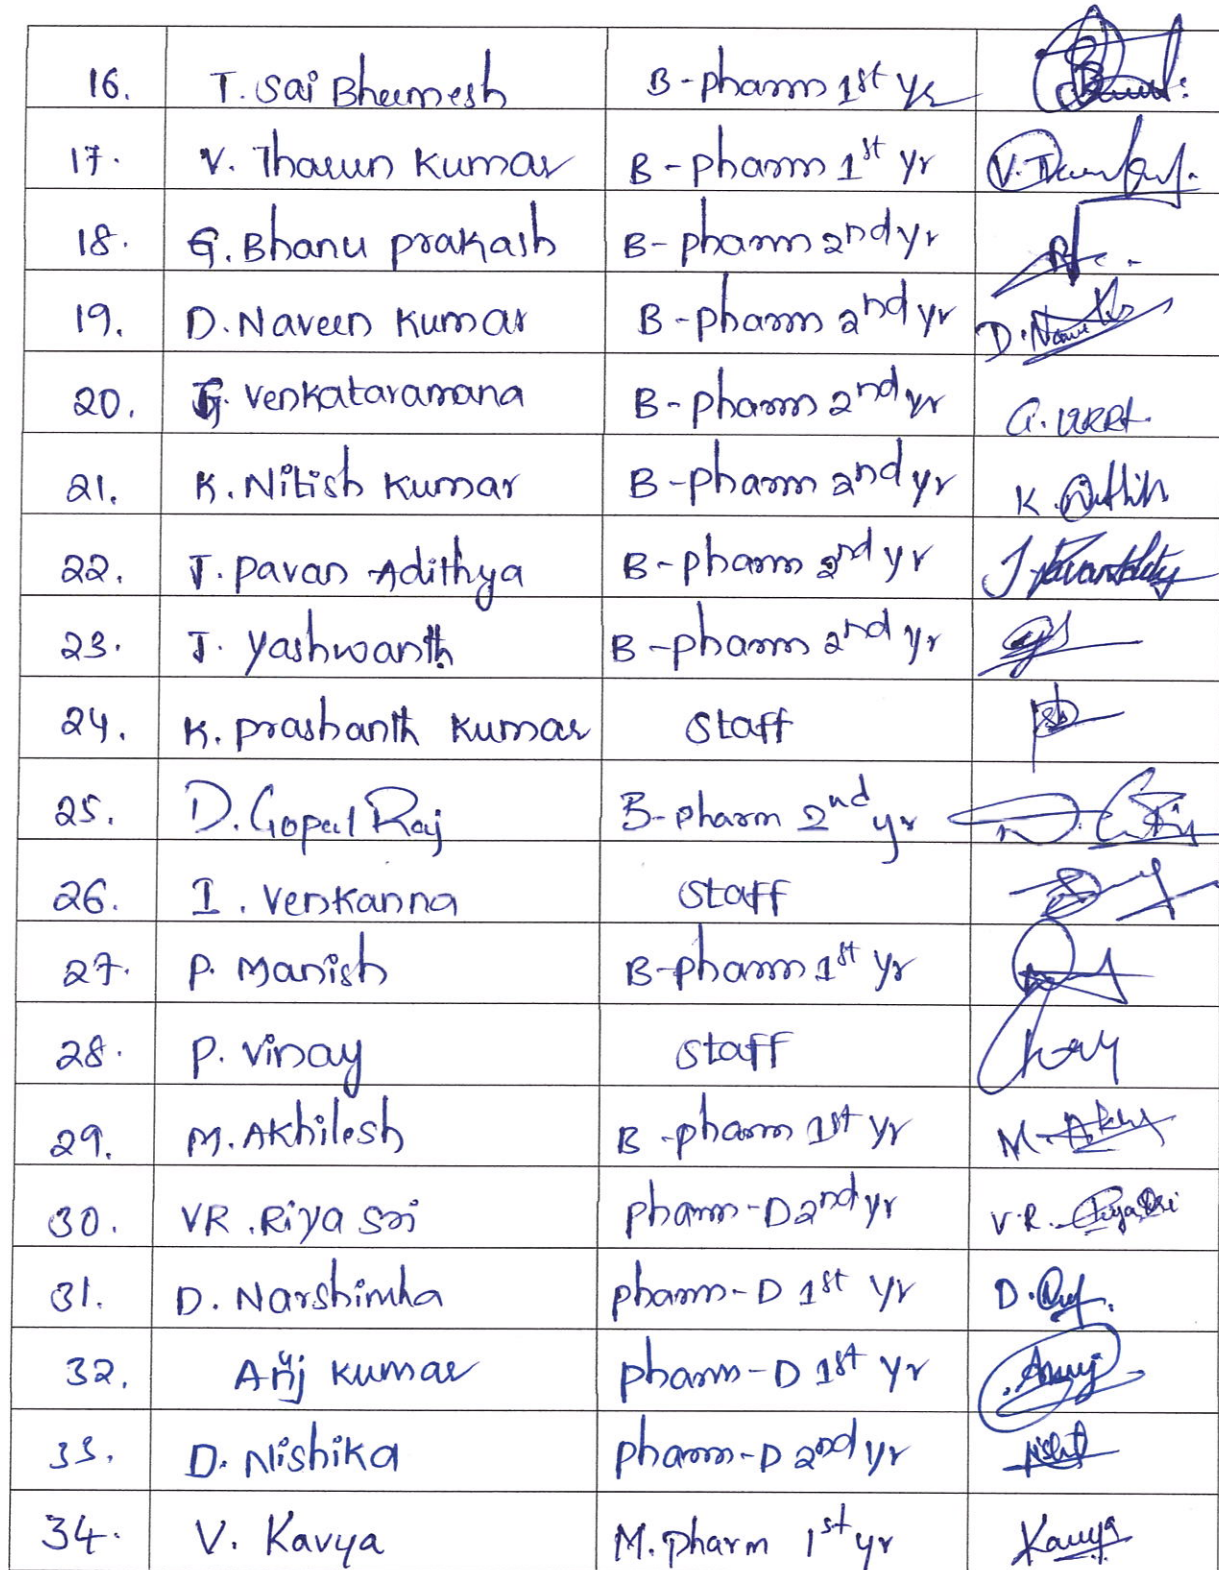 16. T. Sai Bheemesh B-pharm 1st yr
17. V. Tharun Kumar B-pharm 1st yr V. Tharun
18. G. Bhanu prakash B-pharm 2nd yr
19. D. Naveen Kumar B-pharm 2nd yr D. Naveen
20. G. Venkataramana B-pharm 2nd yr G.
21. K. Nitish Kumar B-pharm 2nd yr K. Nithish
22. J. Pavan Adithya B-pharm 2nd yr J. Pavan
23. J. Yashwanth B-pharm 2nd yr
24. K. prashanth Kumar Staff
25. D. Gopal Raj B-pharm 2nd yr
26. I. Venkanna Staff
27. P. Manish B-pharm 1st yr
28. P. Vinay Staff
29. M. Akhilesh B-pharm 1st yr M.
30. VR. Riya Sri pharm-D 2nd yr V.R. Riya Sri
31. D. Narshimha pharm-D 1st yr D.
32. Anuj Kumar pharm-D 1st yr Anuj
33. D. Nishika pharm-D 2nd yr
34. V. Kavya M.pharm 1st yr Kavya